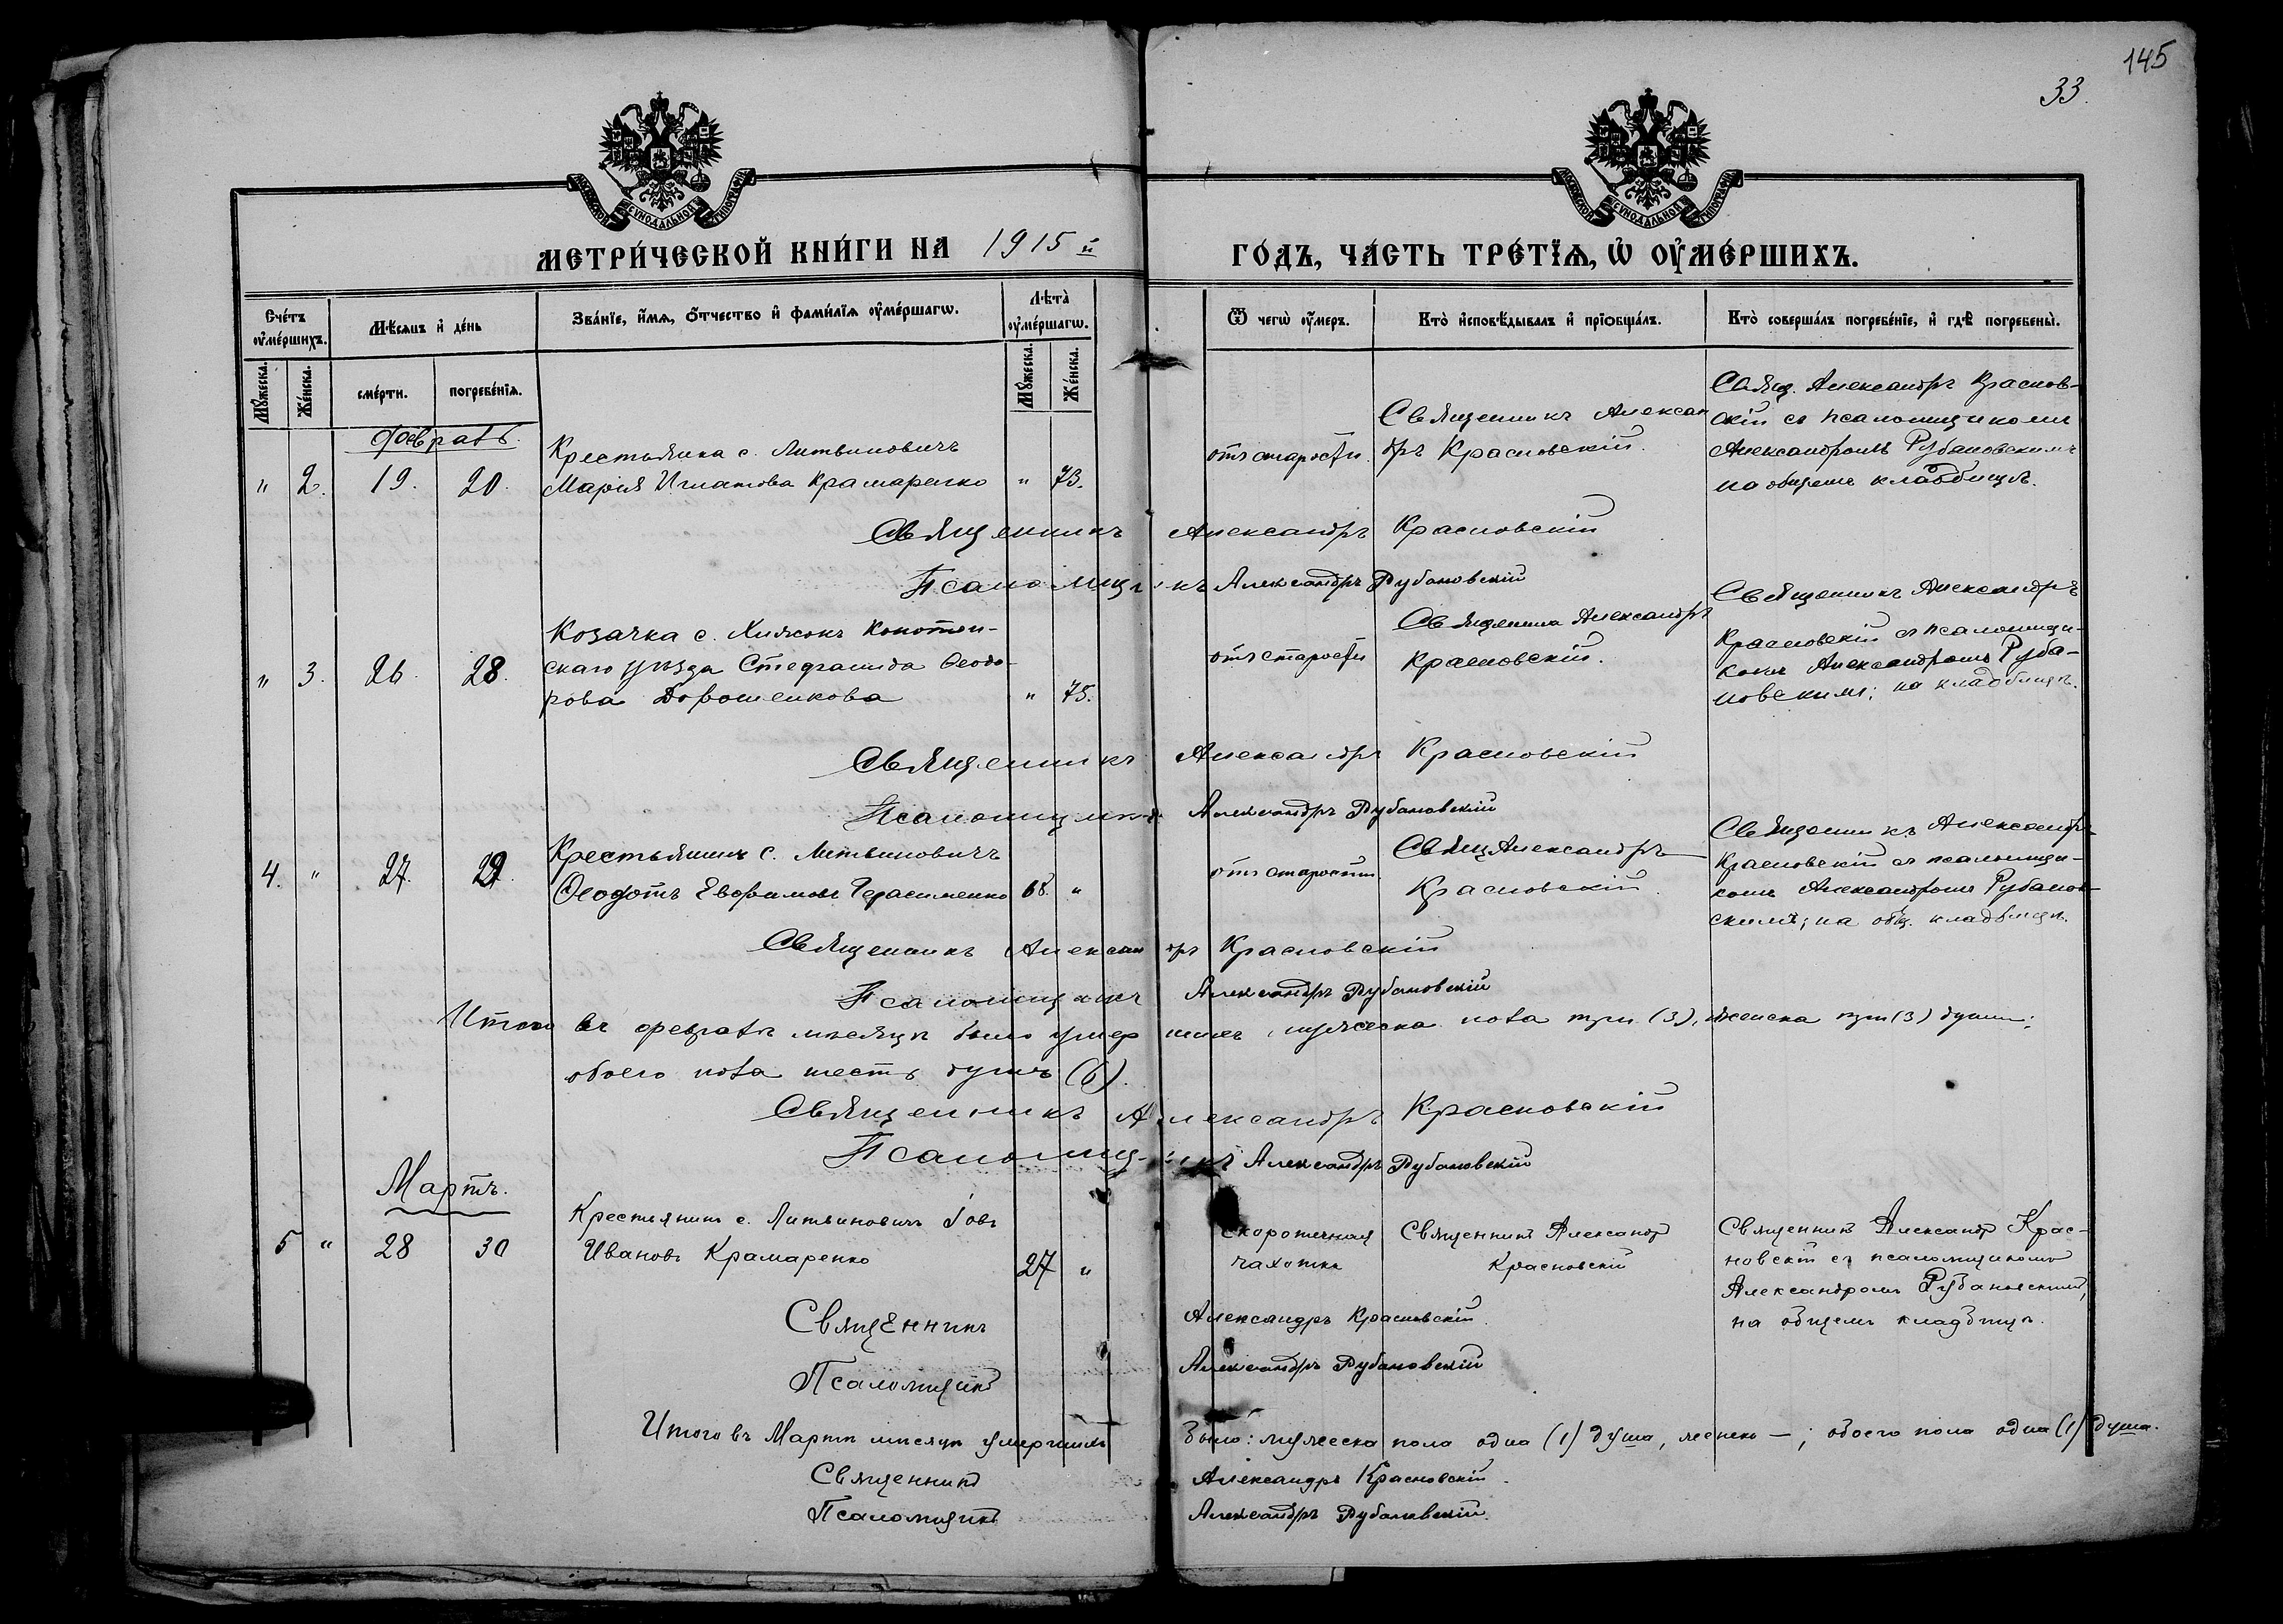 145
33.
МОСКОВСКОЙ СѴНОДАЛЬНОЙ ТИПОГРАФІИ
МОСКОВСКОЙ СѴНОДАЛЬНОЙ ТИПОГРАФІИ
МЕТРИ́ЧЕСКОЙ КНИ́ГИ НА 1915й ГО́ДЪ, ЧА́СТЬ ТРЕ́ТЇѦ, Ѡ҆ ОУ҆МЕ́РШИХЪ.
Сче́тъ оу҆ме́ршихъ.
Мѣ́сѧцъ и҆ де́нь
Зва́нїе, и҆́мѧ, ѻ҆́тчество и҆ фами́лїѧ оу҆ме́ршагѡ.
Лѣта̀ оу҆ме́ршагѡ.
Ѿ чегѡ̀ оу҆́меръ.
Кто̀ и҆сповѣ́дывалъ и҆ прїѻбща́лъ.
Кто̀ соверша́лъ погребе́нїе, и҆ гдѣ̀ погребены̀.
Мꙋ́жеска.
Же́нска.
сме́рти.
погребе́нїѧ.
Мꙋ́жеска.
Же́нска.
Февраль.
" 2. 19. 20.
Крестьянка с. Литвиновичъ
Марія Игнатова Крамаренко " 73.
отъ старости.
Священникъ Алексан
дръ Красновскій.
Свящ. Александръ Краснов-
скій съ псаломщикомъ
Александромъ Рубановскимъ
на общемъ кладбищѣ.
Священникъ Александръ Красновскій
Псаломщикъ Александръ Рубановскій
" 3. 26. 28.
Козачка с. Хижокъ Конотоп-
скаго уѣзда Стефанида Ѳеодо-
рова Дорошенкова " 75.
отъ старости
Священникъ Александръ
Красновскій.
Священникъ Александръ
Красновскій съ псаломщи-
комъ Александромъ Руба-
новскимъ; на кладбищѣ.
Священникъ Александръ Красновскій
Псаломщикъ Александръ Рубановскій
4. " 27. 29.
Крестьянинъ с. Литвиновичъ
Ѳеодотъ Евфимовъ Герасименко 68. "
отъ старости
Свящ Александръ
Красновскій.
Священникъ Александръ
Красновскій съ псаломщи-
комъ Александромъ Рубанов-
скимъ; на общ. кладбищѣ.
Священникъ Александръ Красновскій
Псаломщикъ Александръ Рубановскій
Итого въ февралѣ мѣсяцѣ было умершихъ мужеска пола три (3), женска три (3) души;
обоего пола шесть душъ (6).
Священникъ Александръ Красновскій
Псаломщикъ Александръ Рубановскій
Мартъ.
5 " 28 30
Крестьянинъ с. Литвиновичъ Іовъ
Ивановъ Крамаренко 27 "
Скоротечная
чахотка
Священникъ Александръ
Красновскій
Священникъ Александръ Крас-
новскій съ псаломщикомъ
Александромъ Рубановскимъ,
на общемъ кладбищѣ.
Священникъ Александръ Красновскій.
Псаломщикъ Александръ Рубановскій
Итого въ Мартѣ мѣсяцѣ умершихъ было: мужеска пола одна (1) душа, женска — ; обоего пола одна (1) душа.
Священникъ Александръ Красновскій.
Псаломщикъ Александръ Рубановскій.